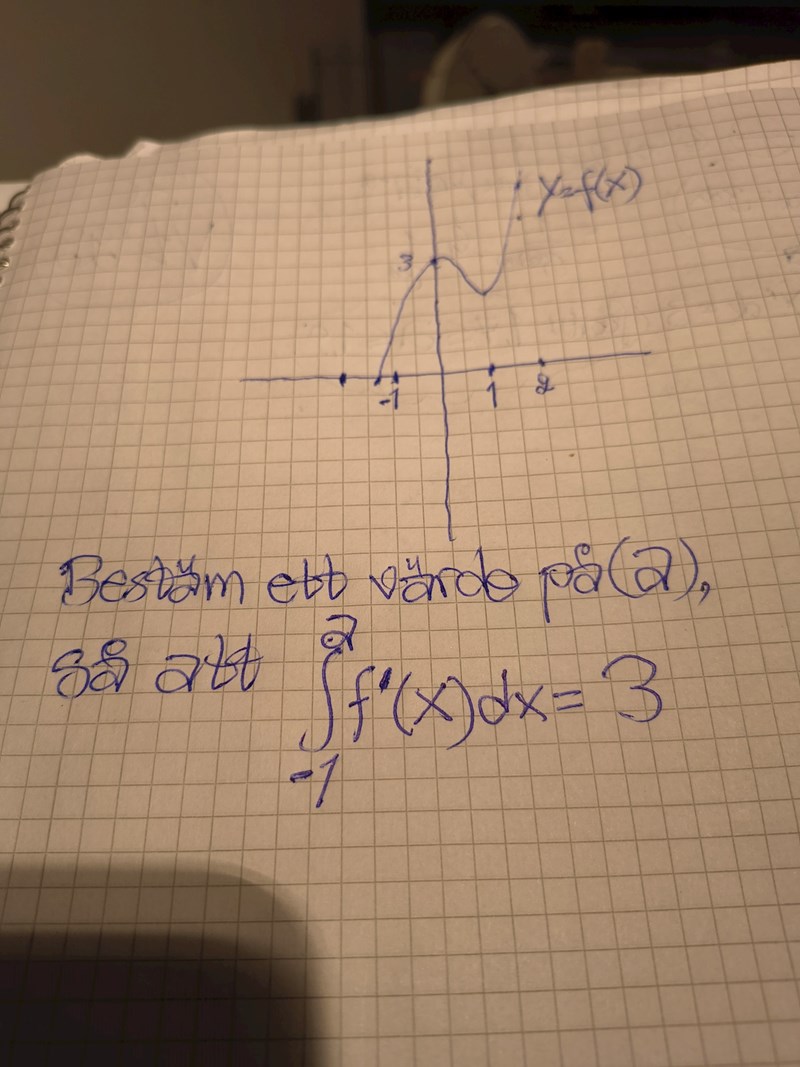 y=f(x)
3
-1 1 2
Bestäm ett värde på (a),
så att ∫ₐ₋₁ f'(x)dx = 3